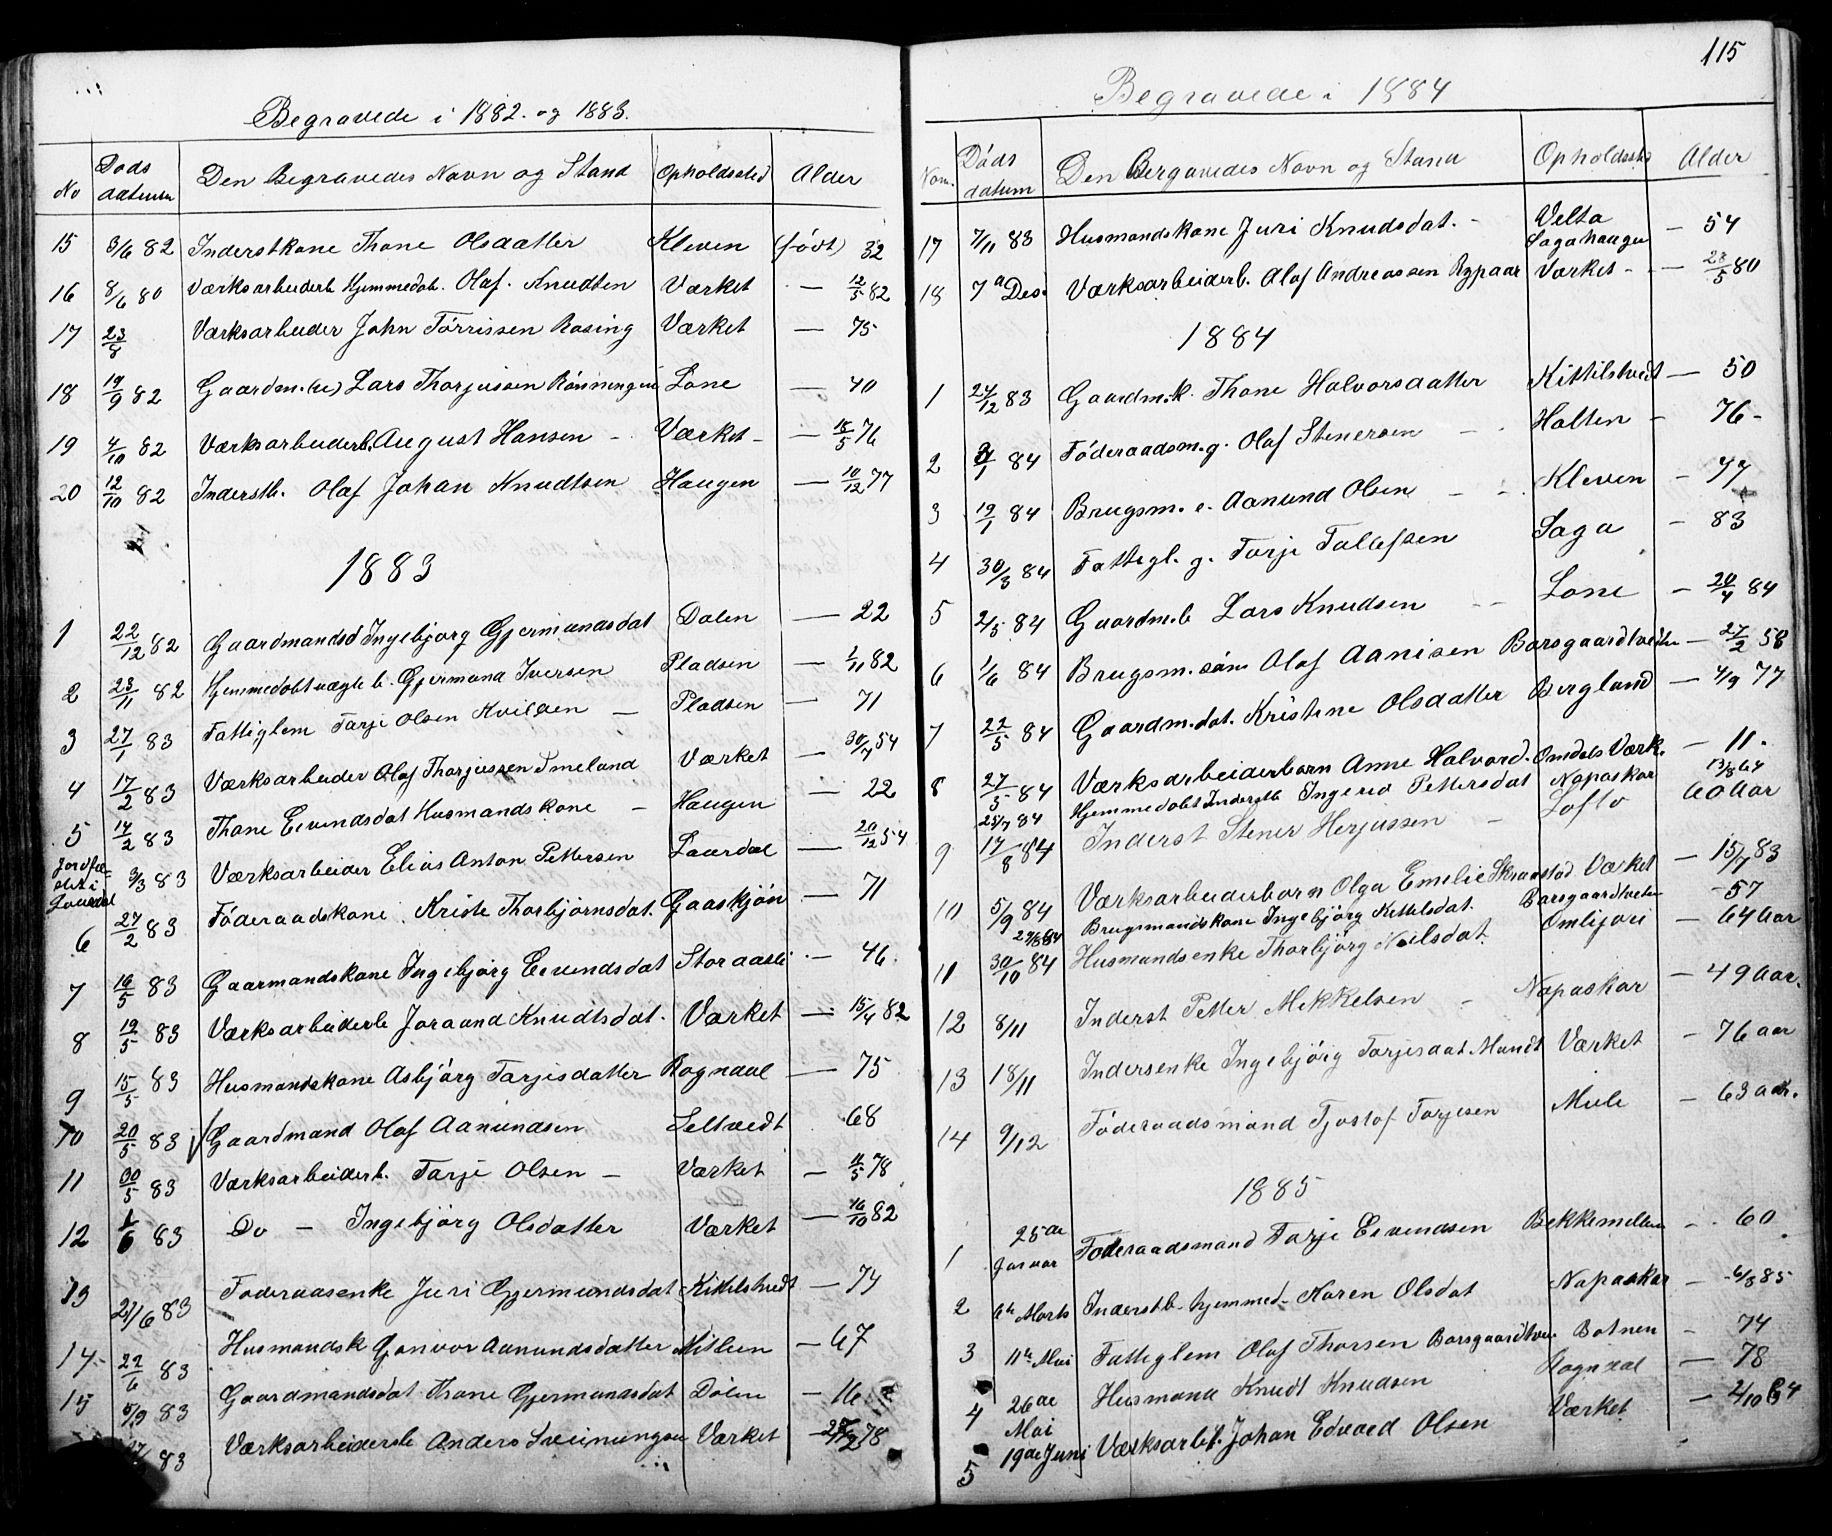 Begravede i 1882. og 1883.
No Døds datum Den Begravedes Navn og Stand Opholdssted Alder
15 3/6 82 Inderstkone Thone Olsdatter Kleven (født) 32
16 8/6 80 Værksarbeiderb. Hjemmedøb. Olaf. Knudsen Værket - — 12/5 82
17 23/8 Værksarbeider John Tørrissen Rosing Værket — 75
18 19/9 82 Gaardm. Lars Thorjussen Rønningen Lone — 40
19 4/10 82 Værksarbeiderb. August Hansen - Værket - — 18/5 76
20 12/10 82 Inderstb. Olaf Johan Knudtsen Haugen — 10/12 77
1883
1 22/12 82 Gaardmandsd Ingebjørg Gjermundsdat Dalen — 22
2 28/11 82 Hjemmedøbt b. Gjermund Iversen Pladsen — 1/11 82
3 27/1 83 Fattiglem Tarje Olsen Kvilden — Pladsen — 71
4 17/2 83 Værksarbeider Olaf Thorjussen Smeland Værket — 30/7 54
5 14/2 83 Thone Eivendsdat Husmandskone — Haugen — 22
Jordfæstet i Laurdal 3/3 83 Værksarbeider Elias Anton Pettersen Laardal — 20/12 54
6 27/2 83 Føderaadskone. Kriste Thorbjørnsdat. Gaaskjøn — 71
7 16/5 83 Gaarmandskone Ingebjørg Eivendsdat Storaasli - — 46.
8 19/5 83 Værksarbeiderb Joraand Knudtsdat. Værket — 15/4 82
9 15/5 83 Husmandskone Asbjørg Tarjesdatter Rogndal — 75
10 20/5 83 Gaardmand Olaf Aanundsen Seltvedt 68
11 30/5 83 Værksarbeiderb. Tarje Olsen — Værket — 11/5 78
12 1/6 83 Do — Ingebjørg Olsdatter Værket — 16/10 82
13 21/6 83 Føderaasenke Juri Gjermundsdat Kittilstvedt — 74
14- 22/6 83 Husmandsk Gonvor Aanundsdatter — 67
15 5/9 83 Gaardmandsdat Thone Gjermundsdat Dalen — 16
83 Værksarbeiderb Anders Sveinungsen Værket 78
115
Begravede i 1884
Nom. Døds datum Den Bergavedes Navn og Stand Opholdsste Alder
17 7/11 83 Husmandskone Juri Knudsdat. - Velta Sagahaugen — 54
18 7de Des. Værksarbeiderb. Olaf Andreassen Rypaar Værket - — 23/5 80
1884
1 24/12 83 Gaardm.k. Thone Halvorsdatter Kittilstvedt — 50
2 1 84 Føderaadsm. g. Olaf Stenersen — - Holten — 76 -
3 19/1 84 Brugsm. e. Aanund Olsen — - Kleven — 77
4 30/3 84 Fattigl. g. Tarje Tallefsen Saga — 83
5 2/5 84 Gaardm.b Lars Knudsen - - Lone — 20/4 84
6 1/6 84 Brugsm. søn Olaf Aanisen Borsgaardtveiten — 27/2 58
7 22/5 84 Gaardm.dat. Kristine Olsdatter Bergland — 4/9 77
8 27/5 84 Værksarbeiderbarn Anne Halvord. Omdals Værk. — 11.
25/7 84 Hjemmedøbt Inderstb Ingerid Pettersdat Napaskar 13/8 64
9 17/8 84 Inderst Stener Herjussen — Lofto 60 Aar
10 5/9 84 Værksarbeiderbarn Olga Emilie Skrastad Værket — 15/7 83
29/8 84 Brugsmandskone Ingebjørg Kittelsdat. Borsgaardtveiten — 57
11 30/10 84 Husmandsenke Thorbjørg Neilsdat. Omlijori — 64 Aar
12 8/11 Inderst Petter Mekkelsen — Napaskar — 49 Aar.
13 18/11 Indersenke Ingebjørg Tarjesdat. Mandt Værket — 76 aar
14 9/12 Føderaadsmand Tjostof Tarjesen Mule — 63 aar.
1885
1 25de Januar Føderaadsmand Tarje Eivendsen Bekkemellem — . 60
2 6te Marts Inderstb. hjemmed. Karen Olsdat Napaskar — 6/3 85
3 11te Mai Fattiglem Olaf Thorsen Borsgaardtvei Botnen — 74
4 26de Mai Husmand Knudt Knudsen Rogndal — 78
5 19de Juni Værksarb. Johan Edvard Olsen Værket — 2/10 64